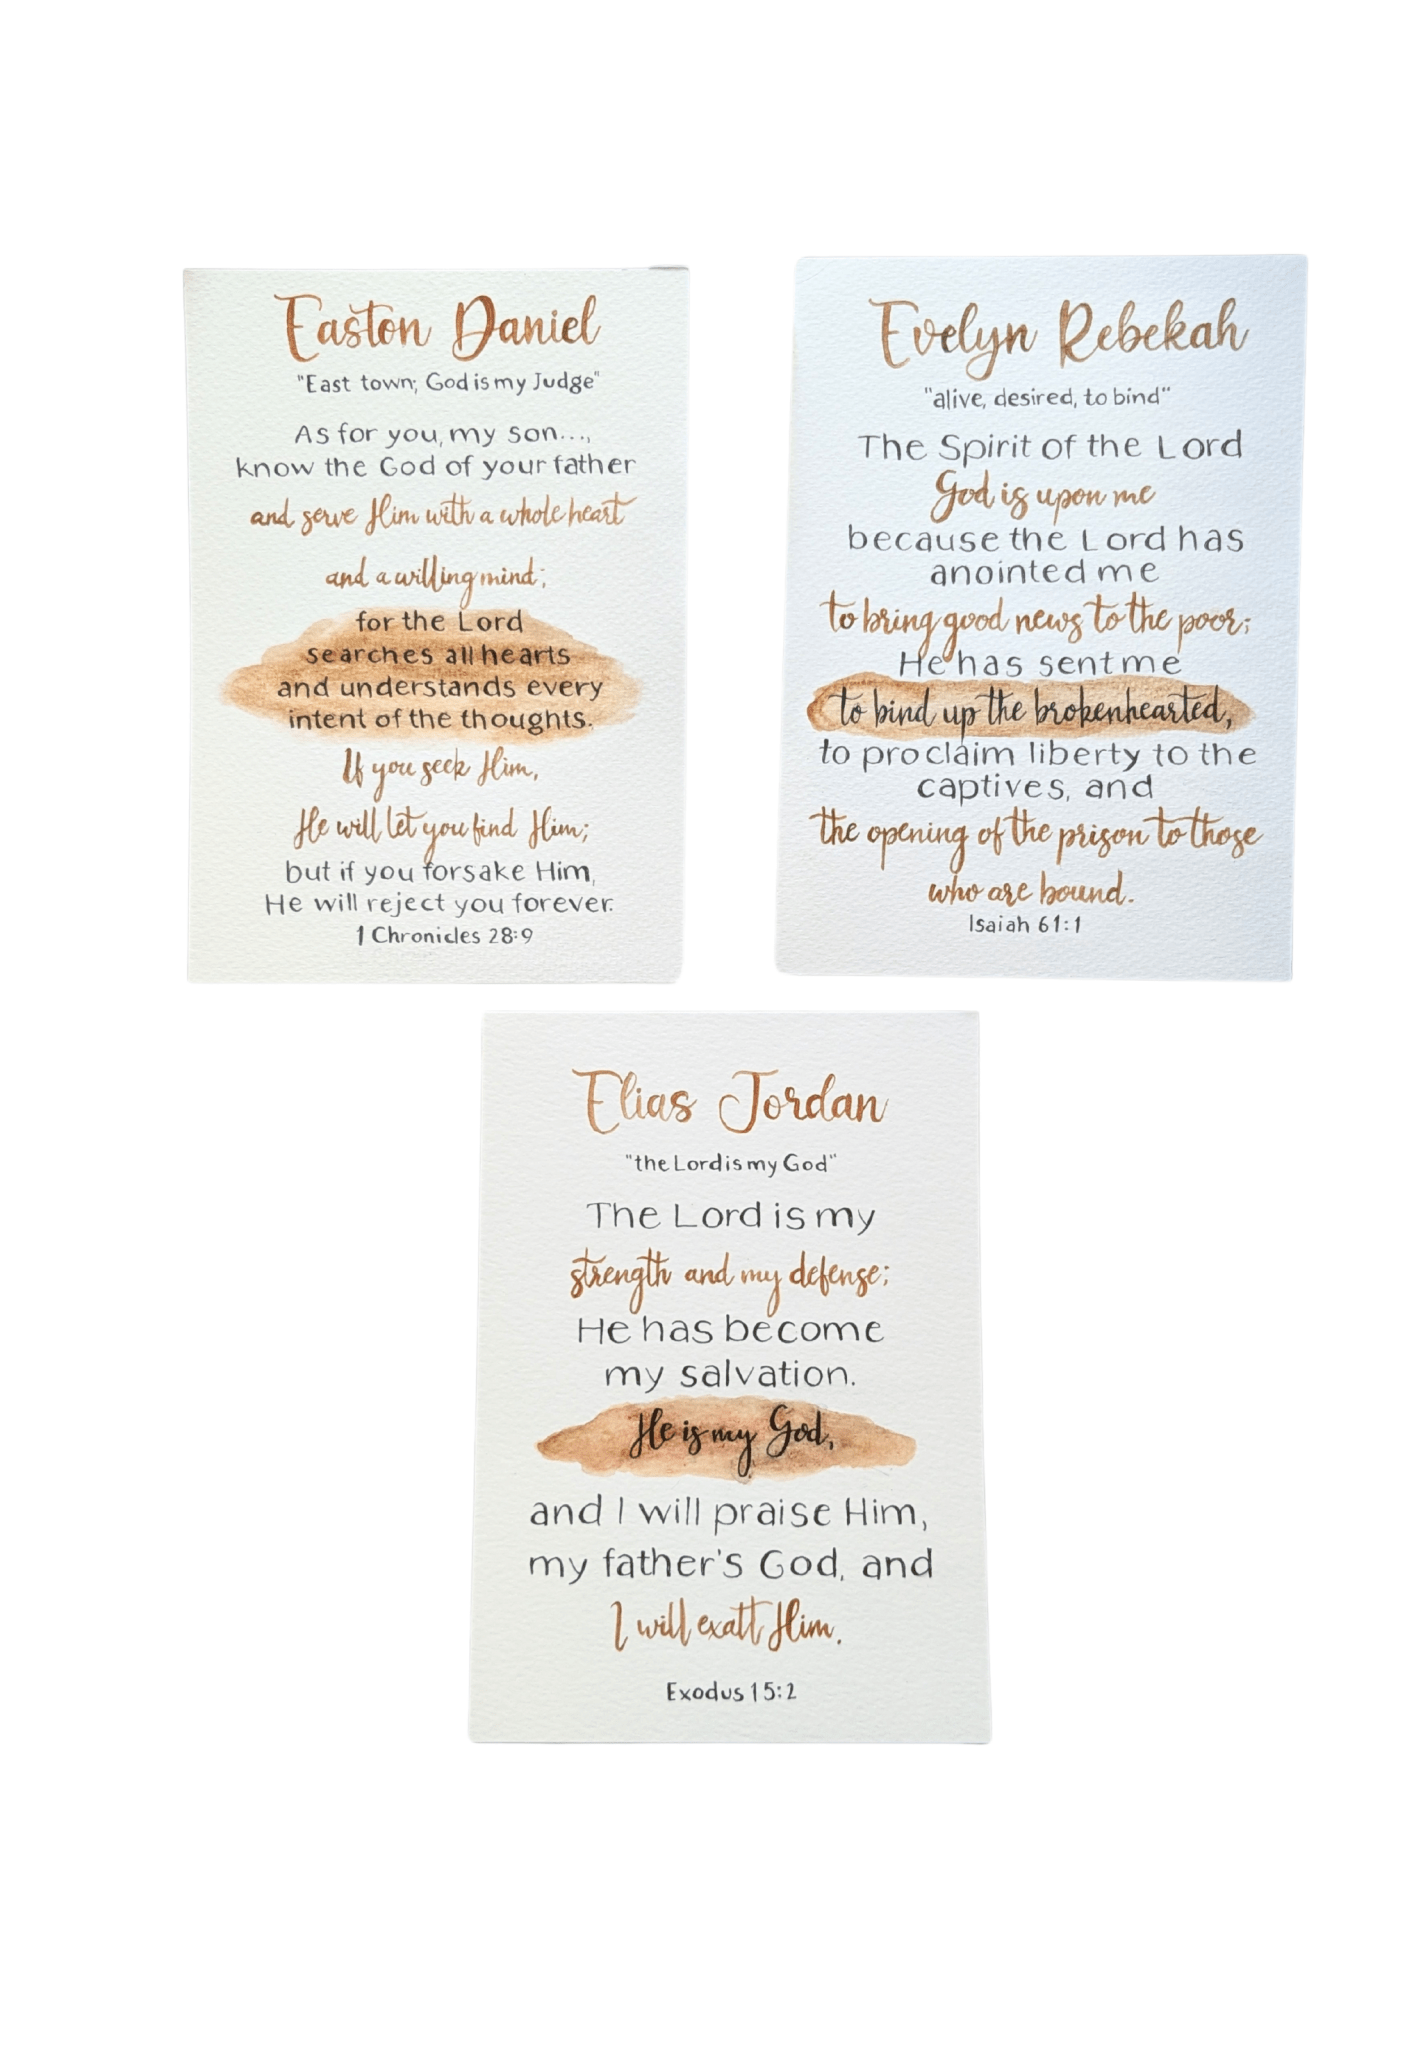 Easton Daniel
"East town; God is my Judge"
As for you, my son...,
know the God of your father
and serve Him with a whole heart
and a willing mind;
for the Lord
searches all hearts
and understands every
intent of the thoughts.
If you seek Him,
He will let you find Him;
but if you forsake Him,
He will reject you forever.
1 Chronicles 28:9
Evelyn Rebekah
"alive, desired, to bind"
The Spirit of the Lord
God is upon me
because the Lord has
anointed me
to bring good news to the poor;
He has sent me
to bind up the brokenhearted,
to proclaim liberty to the
captives, and
the opening of the prison to those
who are bound.
Isaiah 61:1
Elias Jordan
"the Lord is my God"
The Lord is my
strength and my defense;
He has become
my salvation.
He is my God,
and I will praise Him,
my father's God, and
I will exalt Him.
Exodus 15:2